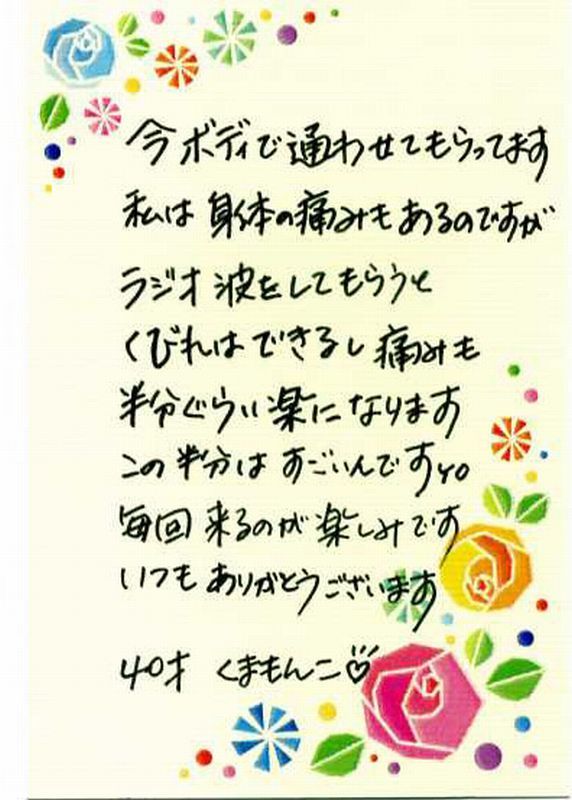 今ボディで通わせてもらってます
私は身体の痛みもあるのですが
ラジオ波をしてもらうと
くびれはできるし痛みも
半分ぐらい楽になります
この半分はすごいんですyo
毎回来るのが楽しみです
いつもありがとうございます
40才 くまもんこ♡